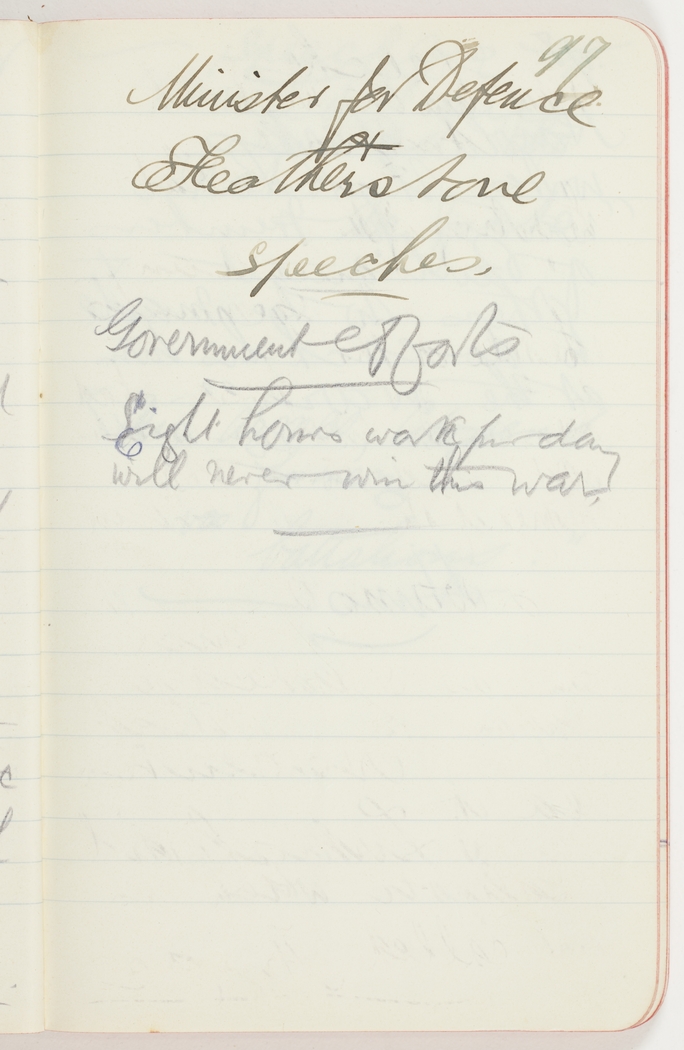 97
Minister for Defence
&
Featherstone
speeches.
Government efforts
Eight hours work per day
will never win this war.